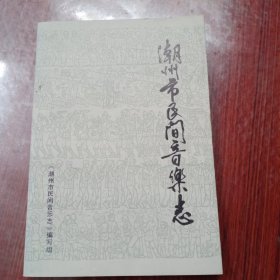 潮州市民间音樂志
《潮州市民间音乐志》编写组